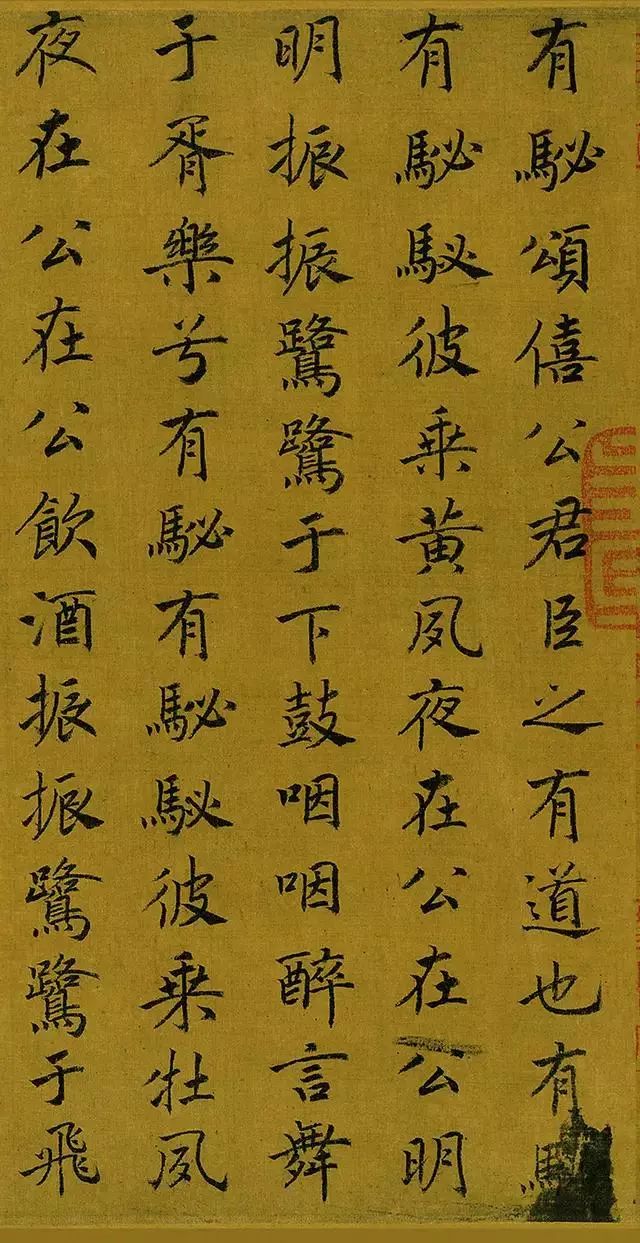 有駜頌僖公君臣之有道也有
有駜駜彼乗黄夙夜在公在公明
明振振鷺鷺于下鼓咽咽醉言舞
于胥樂兮有駜有駜駜彼乗牡夙
夜在公在公飲酒振振鷺鷺于飛